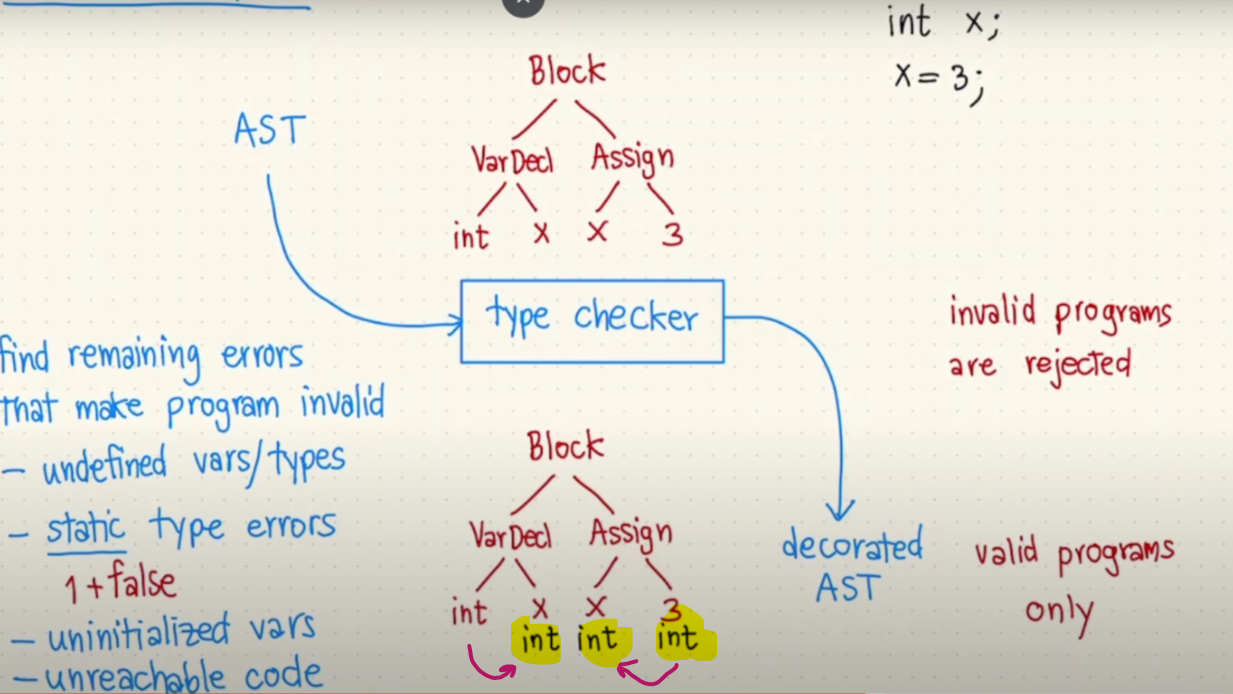 int x;
x = 3;
Block
AST
VarDecl Assign
int x x 3
type checker
invalid programs
are rejected
find remaining errors
that make program invalid
- undefined vars/types
- static type errors
1 + false
- uninitialized vars
- unreachable code
Block
VarDecl Assign
int x x 3
int int int
decorated
AST
valid programs
only